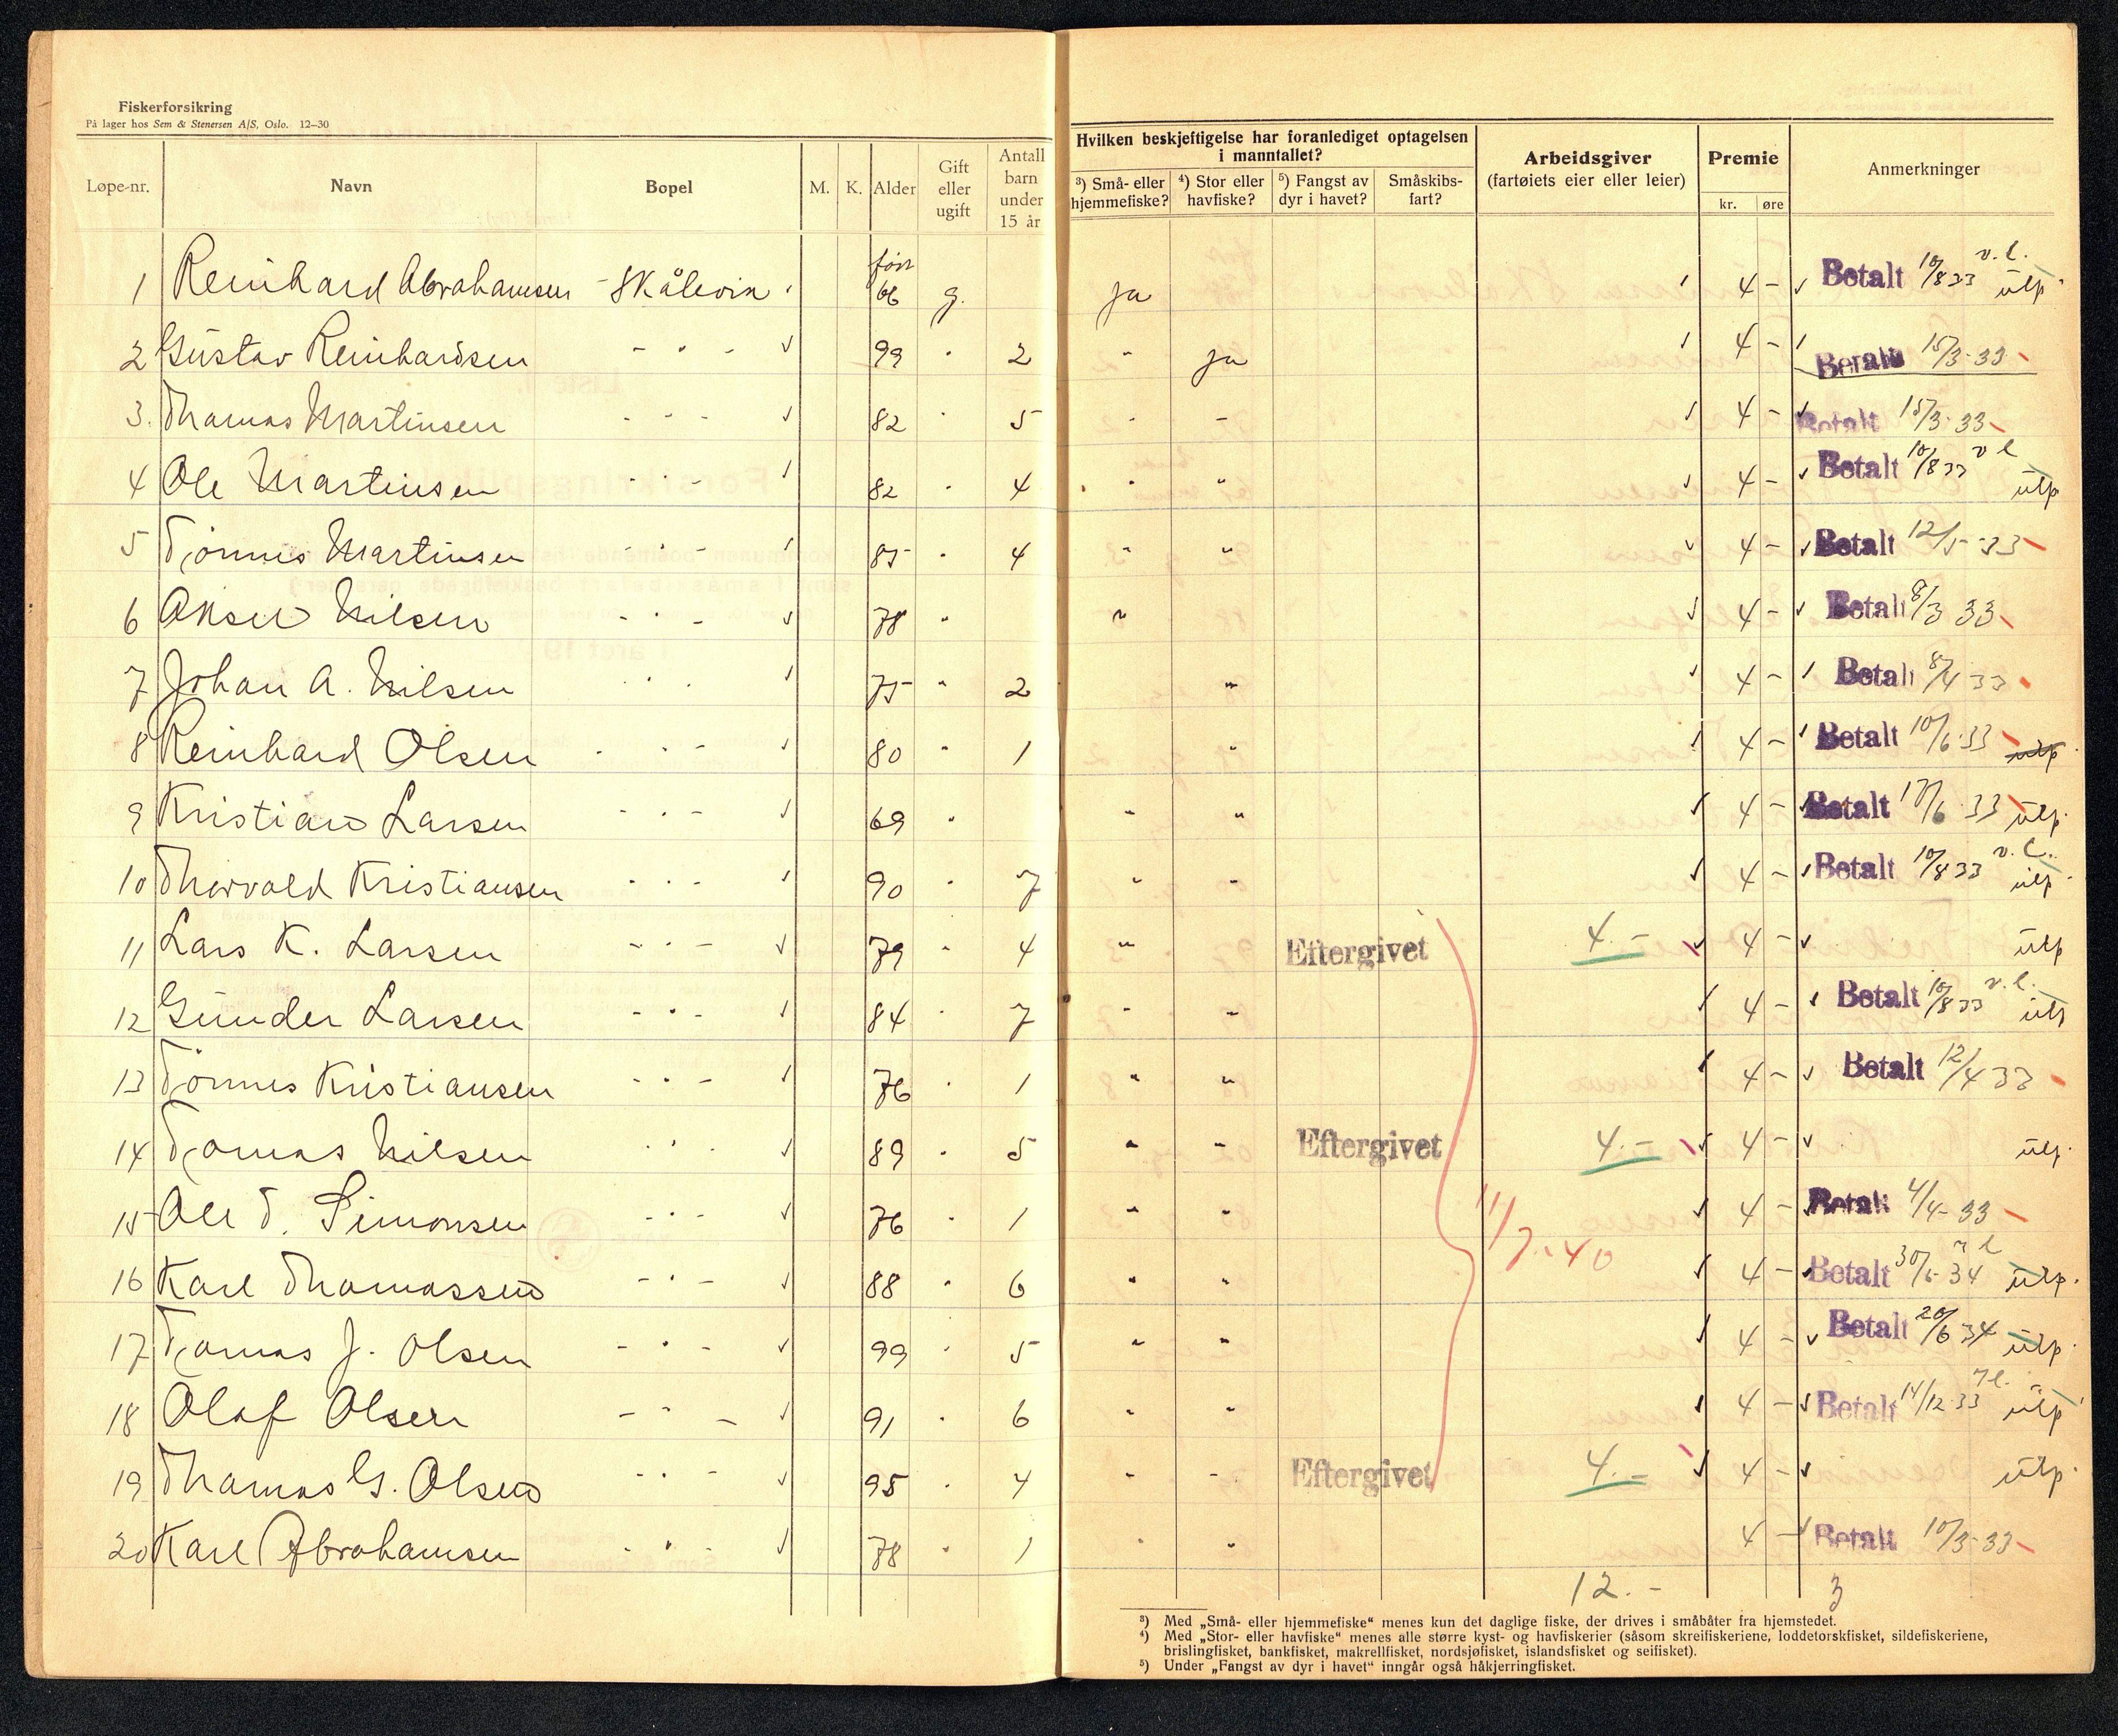 Fiskerforsikring
På lager hos Sem & Stenersen A/S, Oslo. 12—30
Løpe-nr. Navn Bopel M. K. Alder Gift eller ugift Antall barn under 15 år
Hvilken beskjeftigelse har foranlediget optagelsen i manntallet?
³) Små- eller hjemmefiske? ⁴) Stor eller havfiske? ⁵) Fangst av dyr i havet? Småskibs-fart?
Arbeidsgiver (fartøiets eier eller leier) Premie kr. øre Anmerkninger
1 Reinhard Abrahamsen - Skålevik født 66 g. ja 4 - Betalt 10/8 33 v.l. utp
2 Gustav Reinhardsen - " - 99 " 2 " ja 4 - Betalt 15/3-33
3. Thomas Martinsen - - - 82 " 5 " - 4 - Betalt 15/3-33
4 Ole Martinsen " " - 82 " 4 " " 4 - Betalt 10/8 33 v l utp
5 Tönnes Martinsen - " - 85 " 4 " " 4 - Betalt 12/5-33
6 Aksel Nilsen - " - 78 " " 4 - Betalt 8/3 33
7 Johan A. Nilsen " " " 75 " 2 " 4 - Betalt 8/4 33
8 Reinhard Olsen - " - 80 " 1 " 4 - Betalt 10/6-33 utp
9 Kristian Larsen - " - 69 " " " 4 - Betalt 17/6-33 utp.
10 Thorvald Kristiansen - " - 90 " 7 " " 4 - Betalt 10/8 33 v.l. utp
11 Lars K. Larsen - " - 79 " 4 " Eftergivet 4.- 4 - utp
12 Gunder Larsen - " - 84 " 7 " " 4 - Betalt 10/8 33 v.l. utp
13 Tönnes Kristiansen - " - 76 " 1 " " 4 - Betalt 12/4 33
14 Tomas Nilsen " " " 89 " 5 " " Eftergivet 4.- 4 - utp.
15 Ole T. Simonsen - " - 76 " 1 " " 4 - Betalt 4/4-33
11/7-40
16 Karl Thomassen - " - 88 " 6 " " 4 - Betalt 30/6-34 utp.
17 Tomas J. Olsen - " - 99 " 5 " " 4 - Betalt 20/6 34 utp.
18 Olaf Olsen - " - 91 " 6 " " 4 - Betalt 14/12-33 utp
19 Thomas G. Olsen " " - 95 " 4 " " Eftergivet 4.- 4 - utp.
20 Karl Abrahamsen " " " 78 " 1 " " 4 - Betalt 10/3-33
12.- 3
³) Med „Små- eller hjemmefiske“ menes kun det daglige fiske, der drives i småbåter fra hjemstedet.
⁴) Med „Stor- eller havfiske“ menes alle større kyst- og havfiskerier (såsom skreifiskeriene, loddetorskfisket, sildefiskeriene,
brislingfisket, bankfisket, makrellfisket, nordsjøfisket, islandsfisket og seifisket).
⁵) Under „Fangst av dyr i havet“ inngår også håkjerringfisket.